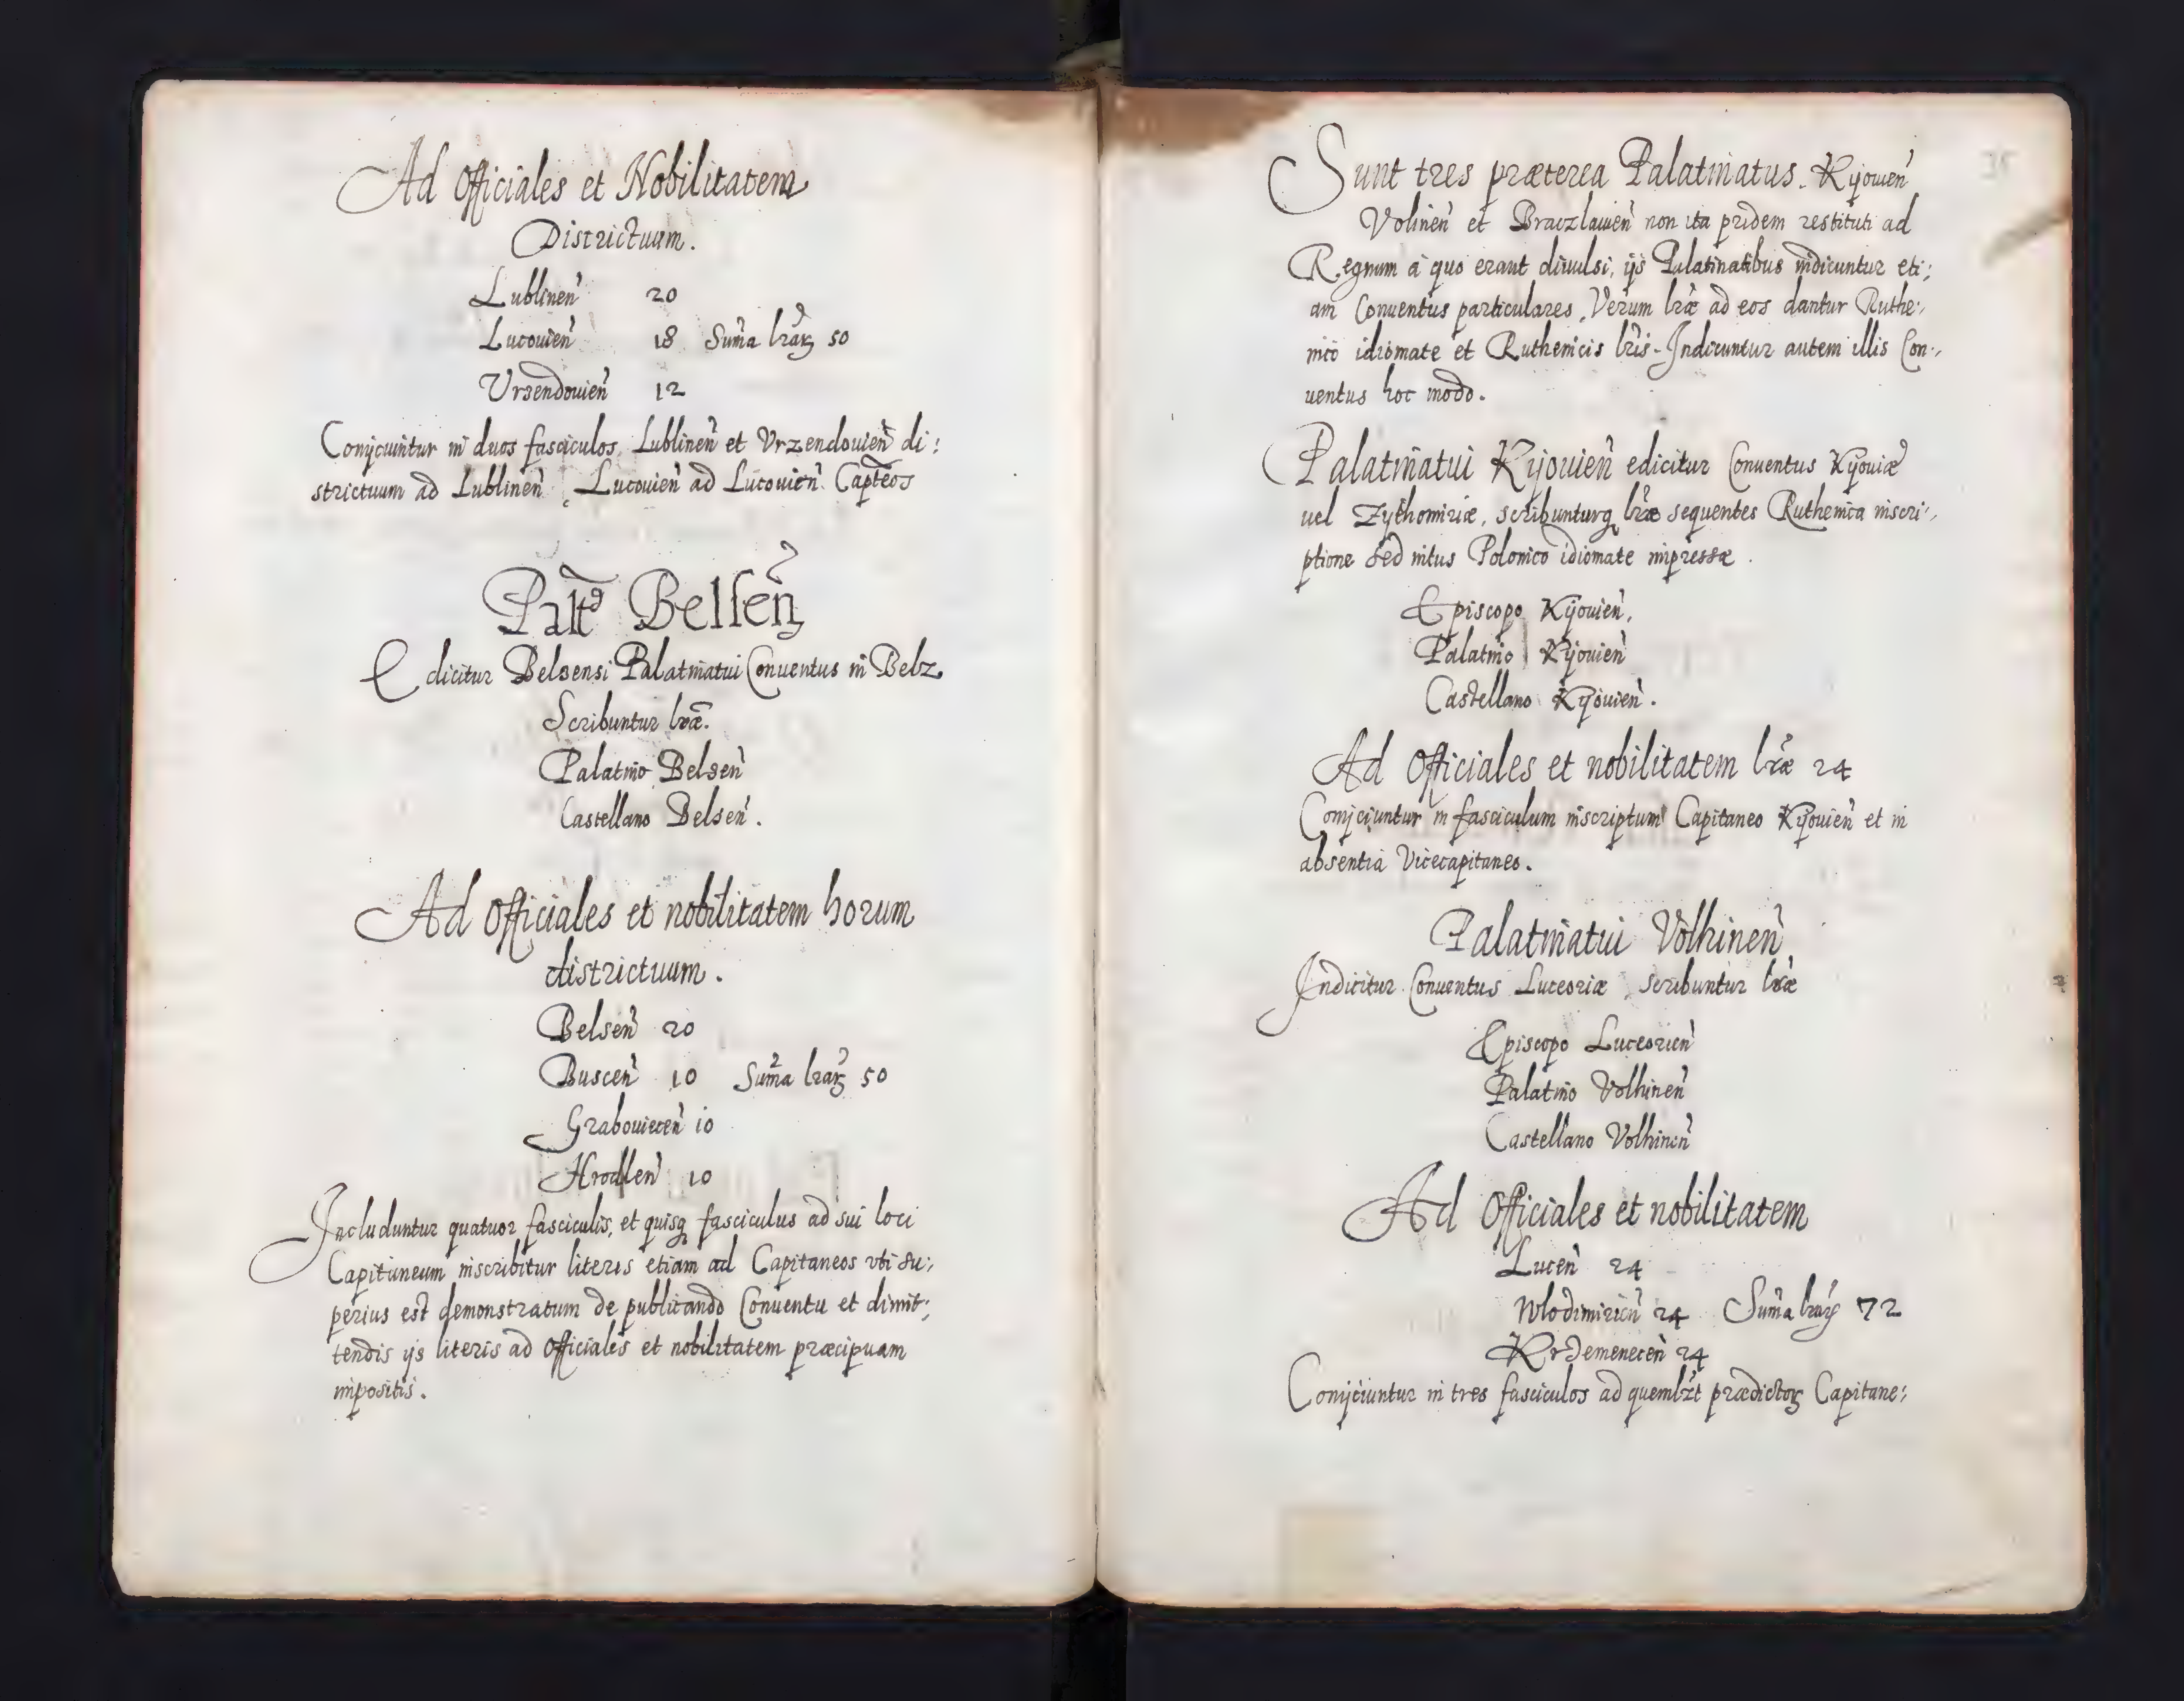 Ad Officiales et Nobilitatem
Districtuum.
Lublineñ 20
Lucouieñ 18 Suma lrarꝫ 50
Vrzendouieñ 12
Conijciuntur in duos fasciculos, Lublineñ et Vrzendouieñ di:
strictuum ad Lublineñ, Lucouieñ ad Lucouieñ Capteos
Palt Belseñ
Edicitur Belsensi Palatinatui Conuentus in Belz.
Scribuntur lræ.
Palatino Belseñ
Castellano Belseñ.
Ad Officiales et nobilitatem horum
districtuum.
Belseñ 20
Busceñ 10 Suma lrarꝫ 50
Grabouieceñ 10
Hrodleñ 10
Includuntur quatuor fasciculis, et quisq fasciculus ad sui loci
Capitaneum inscribitur literis etiam ad Capitaneos vti su:
perius est demonstratum de publicando Conuentu et dimit:
tendis ijs literis ad Officiales et nobilitatem præcipuam
impositis.
35
Sunt tres præterea Palatinatus. Kijouieñ
Volineñ et Braczlauieñ non ita pridem restituti ad
Regnum à quo erant diuulsi, ijs Palatinatibus indicuntur eti:
am Conuentus particulares, Verum lræ ad eos dantur Ruthe:
nico idiomate et Ruthenicis lris. Indicuntur autem illis Con:
uentus hoc modo.
Palatinatui Kijouieñ edicitur Conuentus Kijouiæ
uel Zythomiriæ, scribunturq lræ sequentes Ruthenica inscri:
ptione sed intus Polonico idiomate impressæ.
Episcopo Kijouieñ,
Palatino Kijouieñ
Castellano Kijouieñ.
Ad Officiales et nobilitatem lræ 24
Conijciuntur in fasciculum inscriptum Capitaneo Kijouieñ et in
absentia Vicecapitaneo.
Palatinatui Volhineñ
Indicitur Conuentus Luceoriæ, scribuntur lræ
Episcopo Luceorieñ
Palatino Volhineñ
Castellano Volhineñ
Ad Officiales et nobilitatem
Luceñ 24
Wlodimirieñ 24 Suma lrarꝫ 72
Krzemeneceñ 24
Conijciuntur in tres fasciculos ad quemlzt prædictorꝫ Capitane: